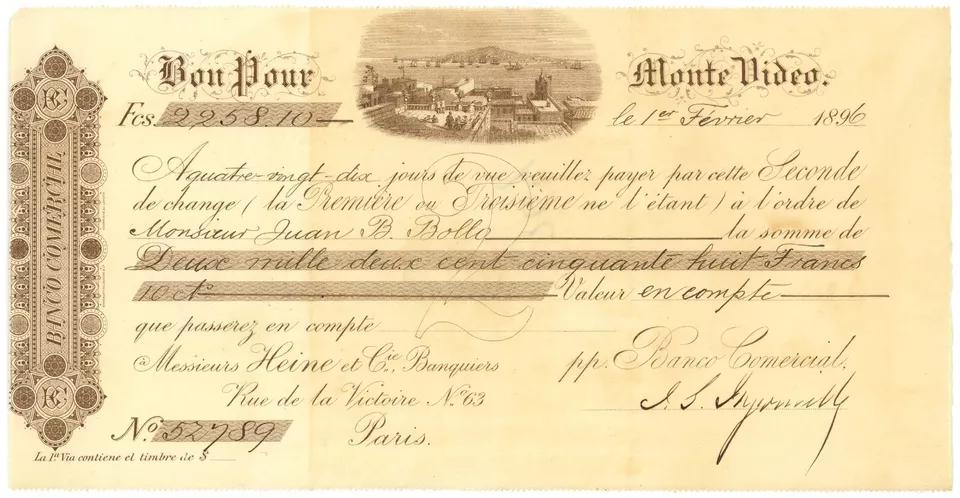 Bon Pour Monte Video.
Fcs. 2,258.10 le 1er Février 1896
A quatre-vingt-dix jours de vue veuillez payer par cette Seconde
de change (la Première ou Troisième ne l'étant) à l'ordre de
Monsieur Juan B. Bollo la somme de
Deux mille deux cent cinquante huit Francs
10 cts Valeur en compte
que passerez en compte
à Messieurs Heine et Cie., Banquiers pp. Banco Comercial.
Rue de la Victoire No. 63
No. 52789 Paris.
La 1a Via contiene el timbre de $
BANCO COMERCIAL
BC
BC
2